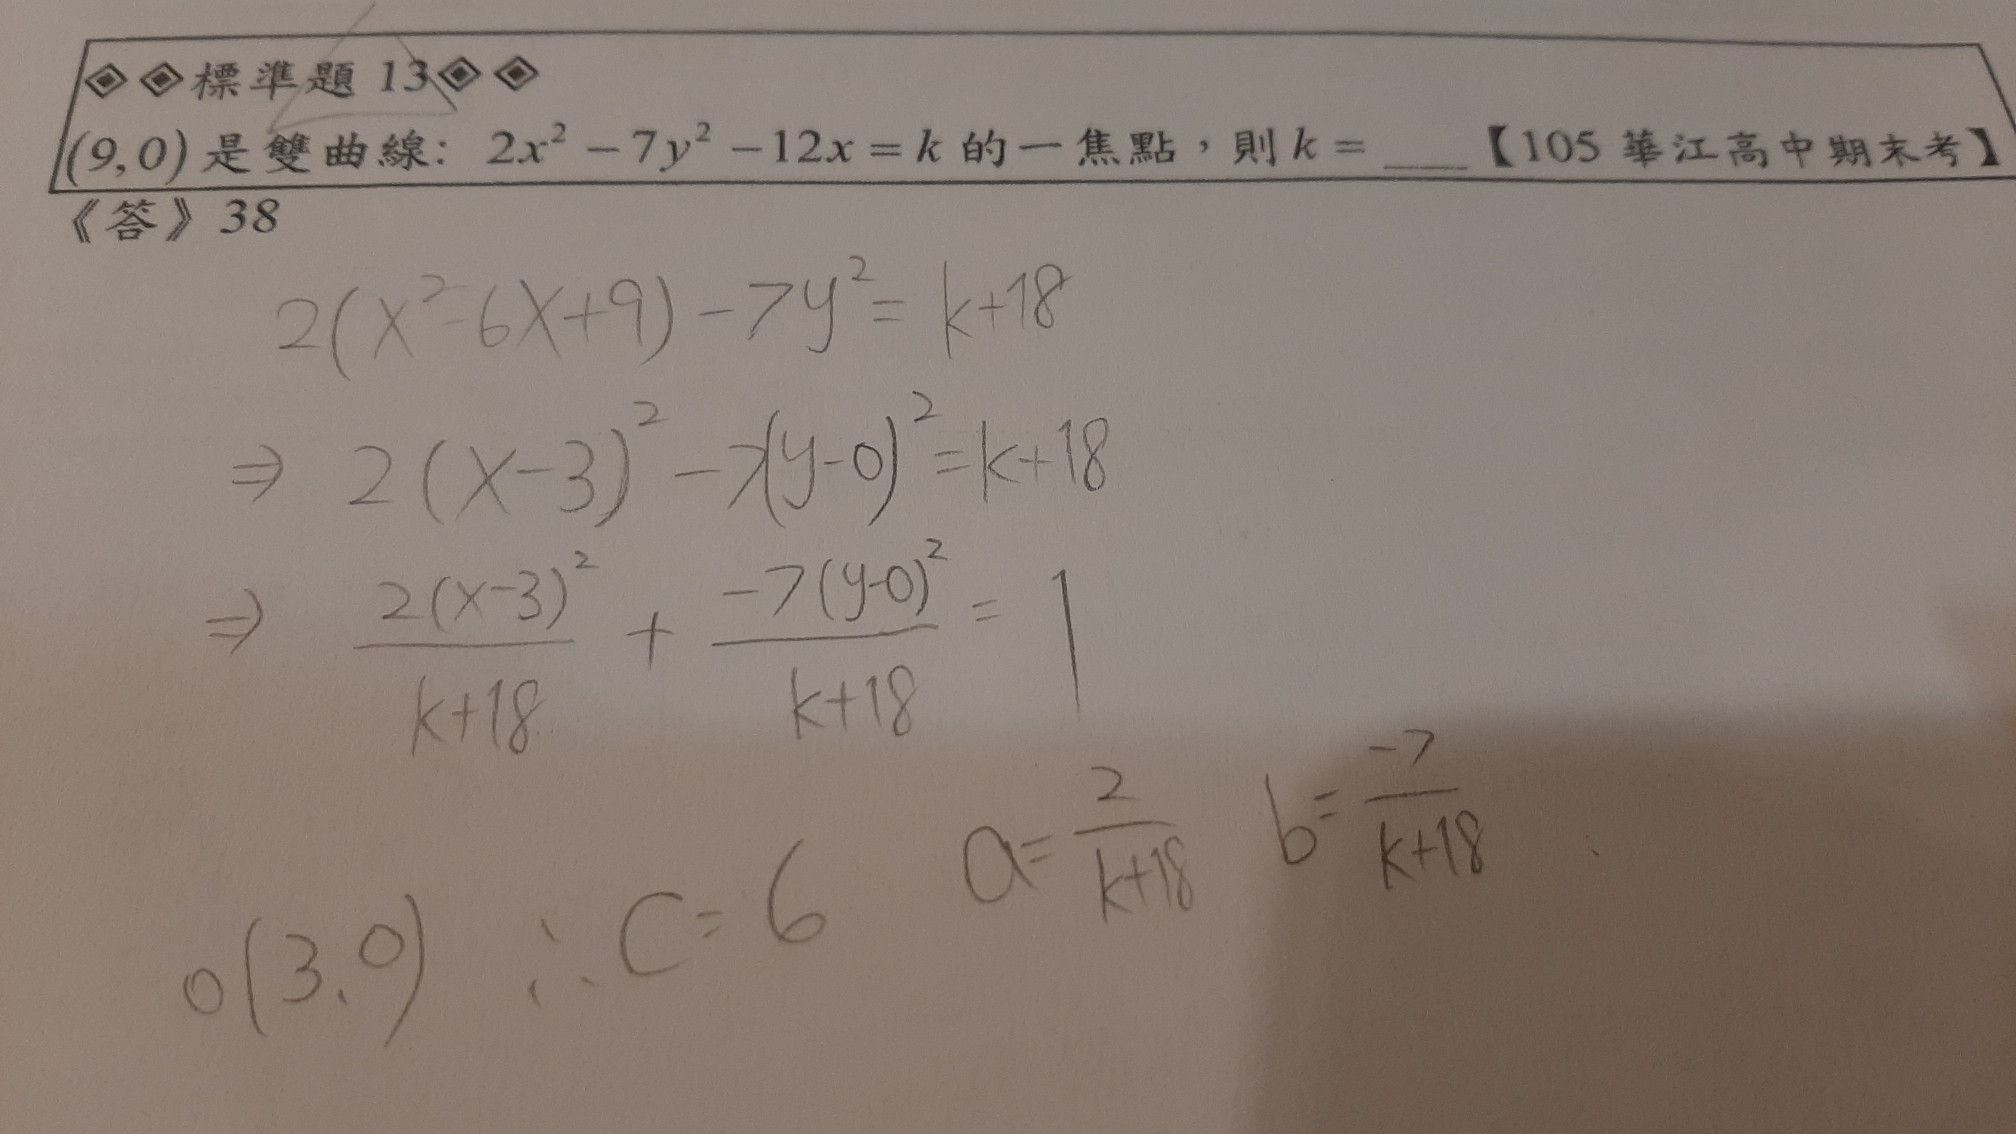 ◈◈標準題 13◈◈
(9,0) 是雙曲線: 2x² − 7y² − 12x = k 的一焦點，則 k = ___【105 華江高中期末考】
《答》38
2(x²-6x+9)-7y²=k+18
⇒ 2(x-3)²-7(y-0)²=k+18
⇒ 2(x-3)²/k+18 + -7(y-0)²/k+18 = 1
a=2/k+18 b=-7/k+18
O(3,0) ∴C=6